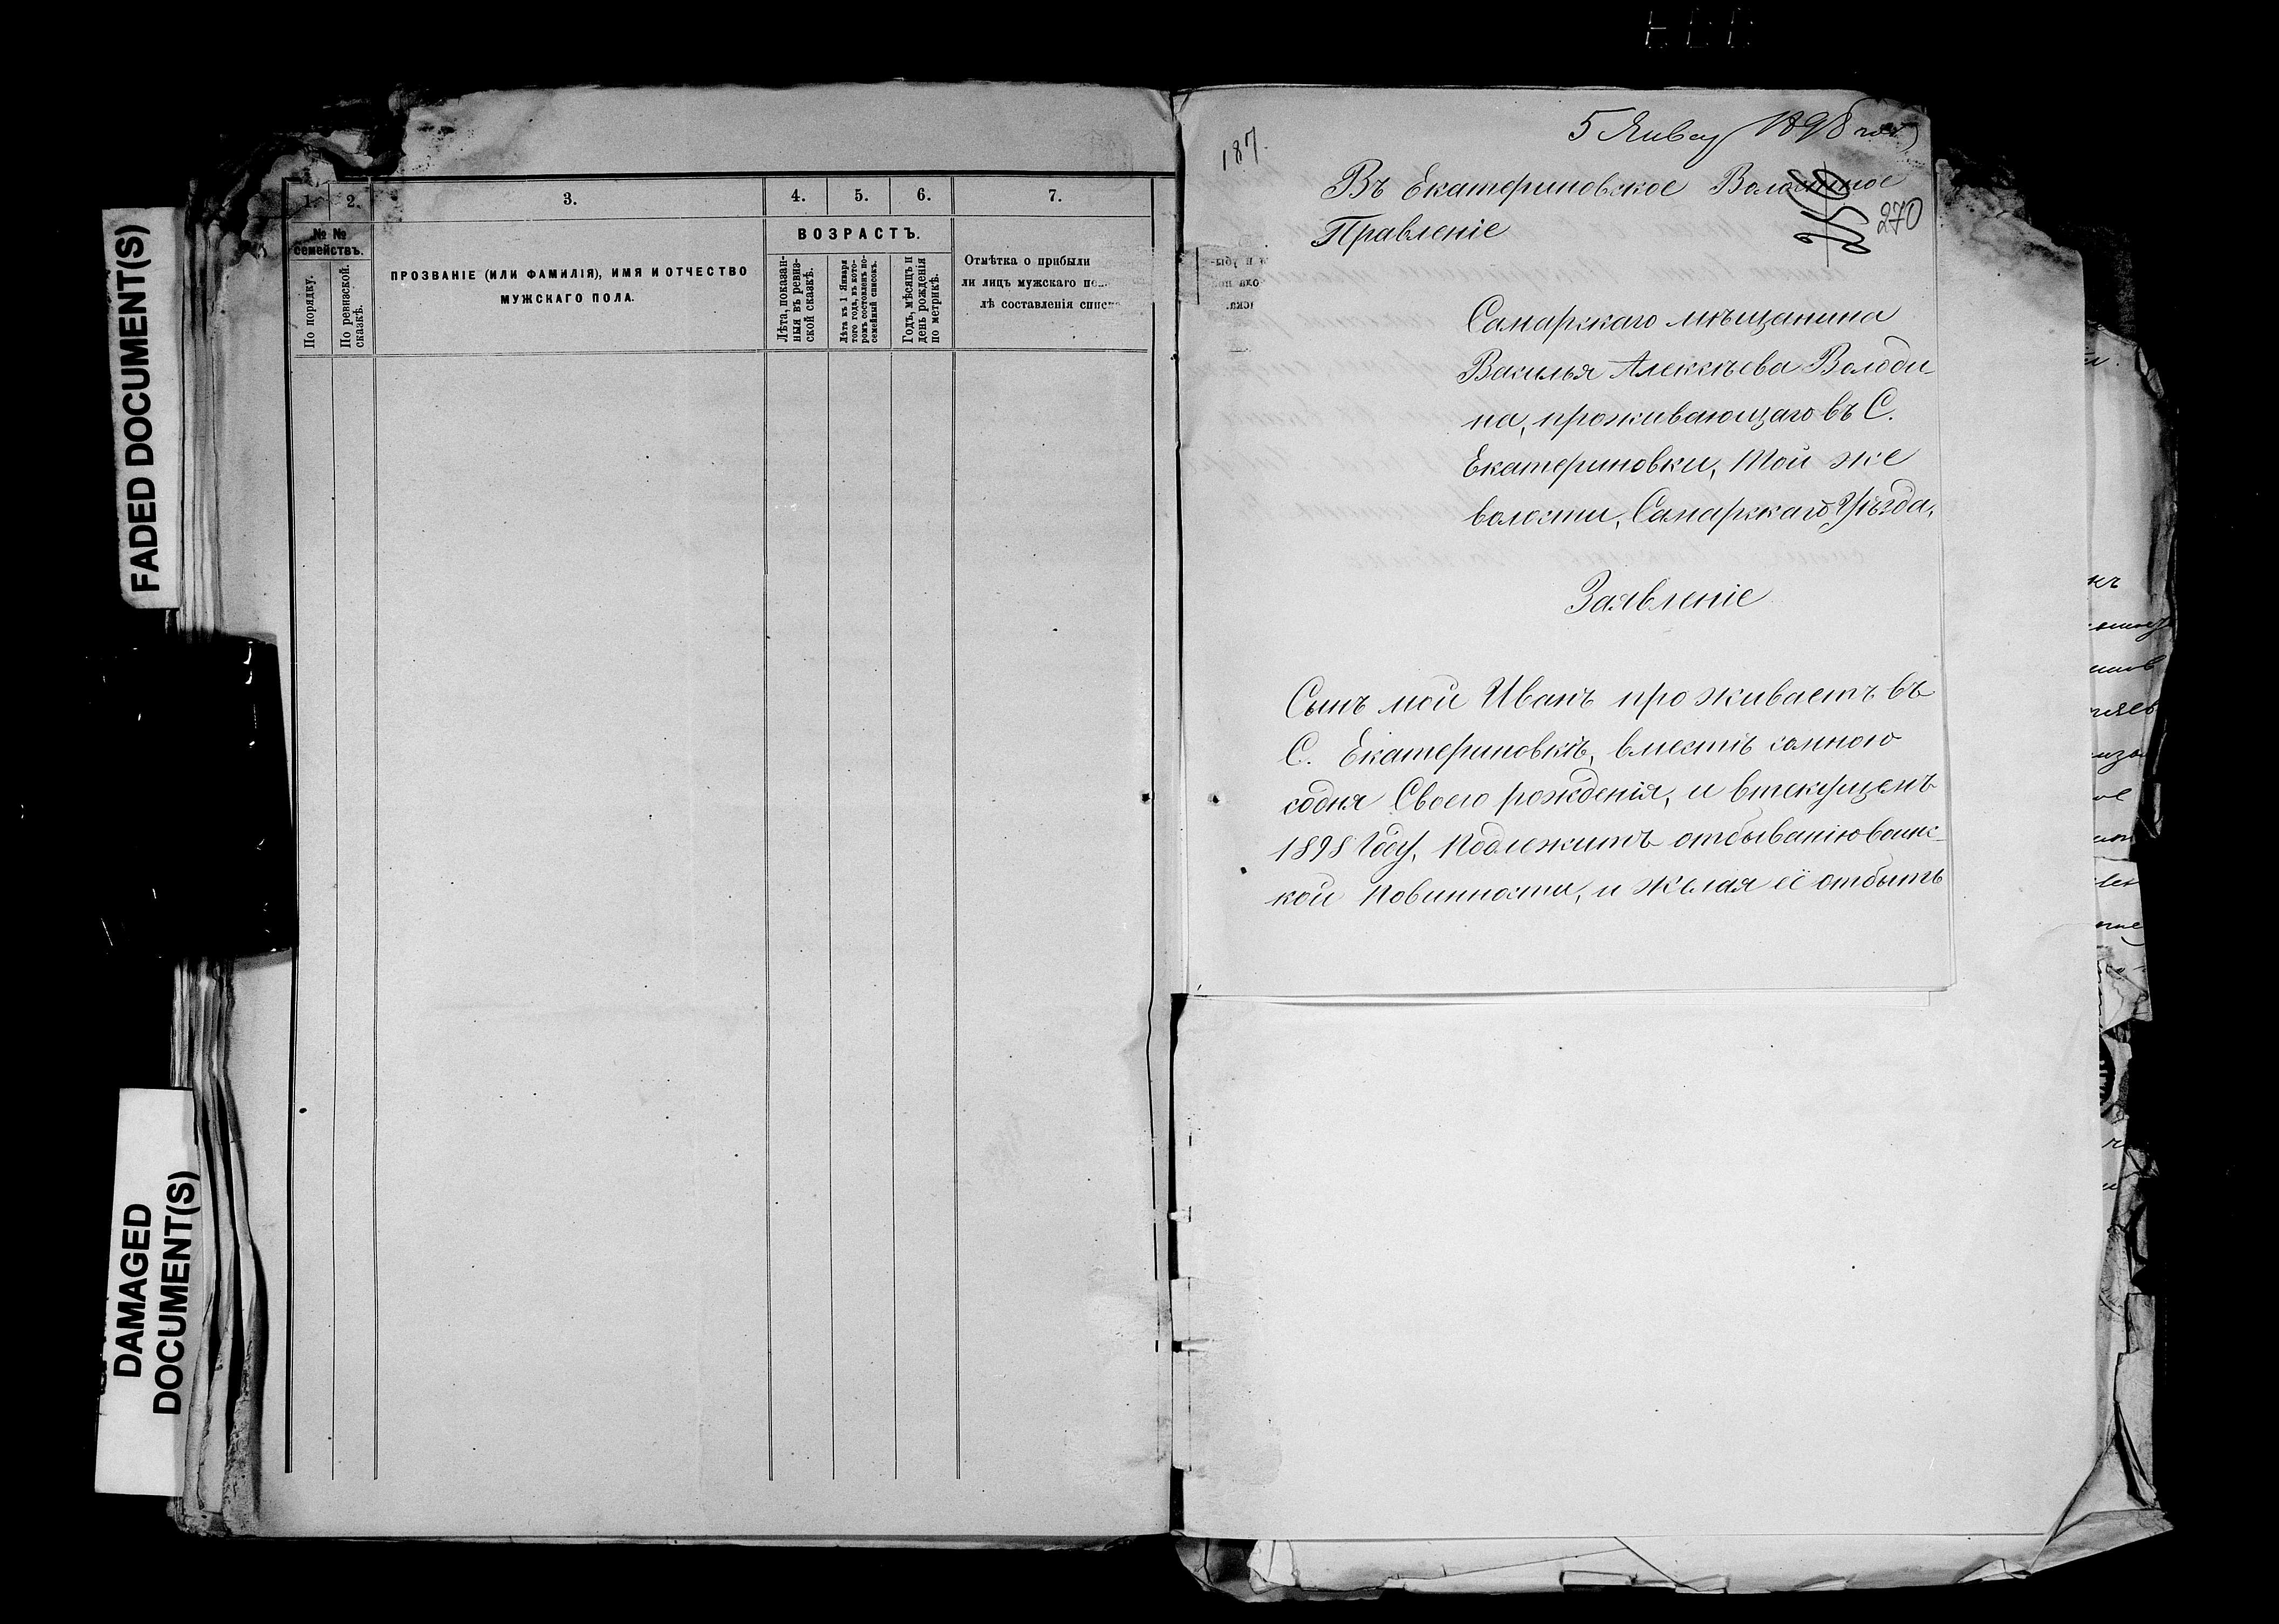 FADED DOCUMENT(S)
DAMAGED
DOCUMENT(S)
1. 2. 3. 4. 5. 6. 7.
№ №
семействъ.
По порядку.
По ревизской
сказкѣ.
ПРОЗВАНІЕ (ИЛИ ФАМИЛІЯ), ИМЯ И ОТЧЕСТВО
МУЖСКАГО ПОЛА.
ВОЗРАСТЪ.
Лѣта, показан-
ныя въ ревиз-
ской сказкѣ.
Лѣта къ 1 Января
того года, въ кото-
ромъ составленъ по-
семейный списокъ.
Годъ, мѣсяцъ и
день рожденія
по метрикѣ.
Отмѣтка о прибыли
ли лицъ мужскаго
лѣ составленія
187.
5 Январ 1898
Въ Екатериновское Волостное
Правленіе
270
Самарскаго мѣщанина
Василья Алексѣева Володи-
на, проживающаго въ С.
Екатериновки, Той же
волости, Самарскаго Уѣзда,
Заявленіе
Сынъ мой Иванъ проживаетъ въ
С. Екатериновкѣ, вместѣ самною
содня Своего рожденія, и втекущемъ
1898 Году, Подлежитъ отбыванію воинс-
кой Повинности, и Желая её отбыть